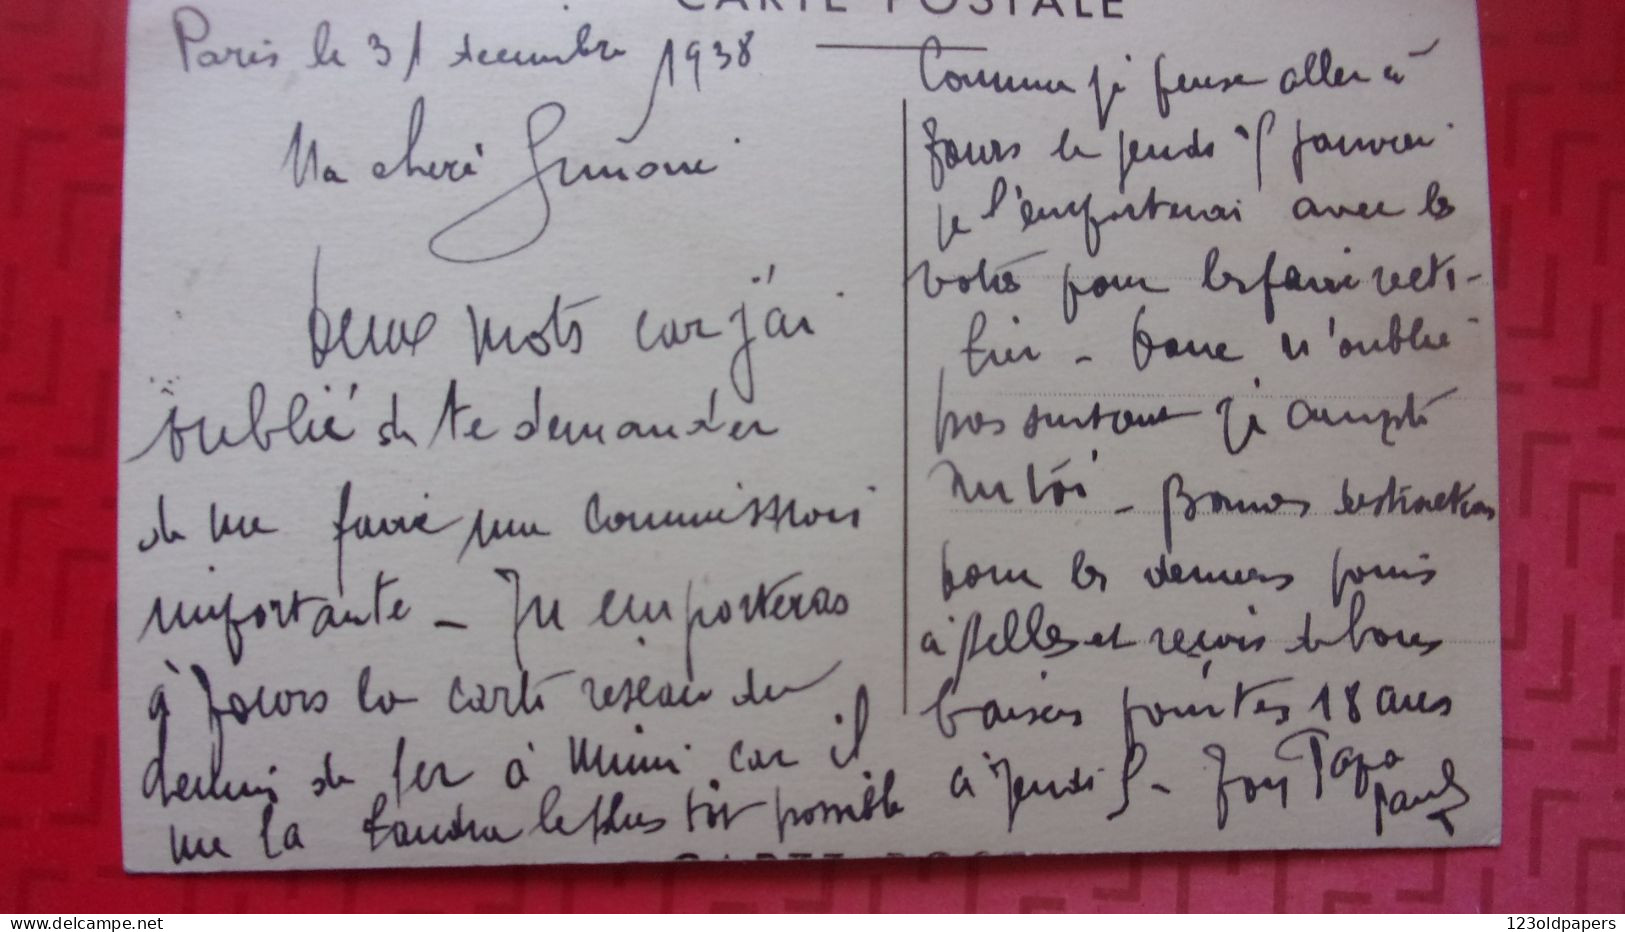 CARTE POSTALE
Paris le 31 decembre 1938
Ma cherè Simone
Deux mots car j'ai
oublié de te demander
de me faire une commission
importante - Tu emporteras
à Tours la carte reseau du
chemin de fer à Mimi car il
me la faudra le plus tôt possible
Comme je pense aller à
Tours le jeudi 5 Janvier
je l'emporterai avec les
votres pour les faire recti-
fier - Donc n'oublie
pas surtout je compte
sur toi - Bonnes distractions
pour les derniers jours
à et reçois de bons
baisers pour tes 18 ans
à Jeudi 5 - Ton Papa
Paul
CARTE POSTALE
123oldpapers